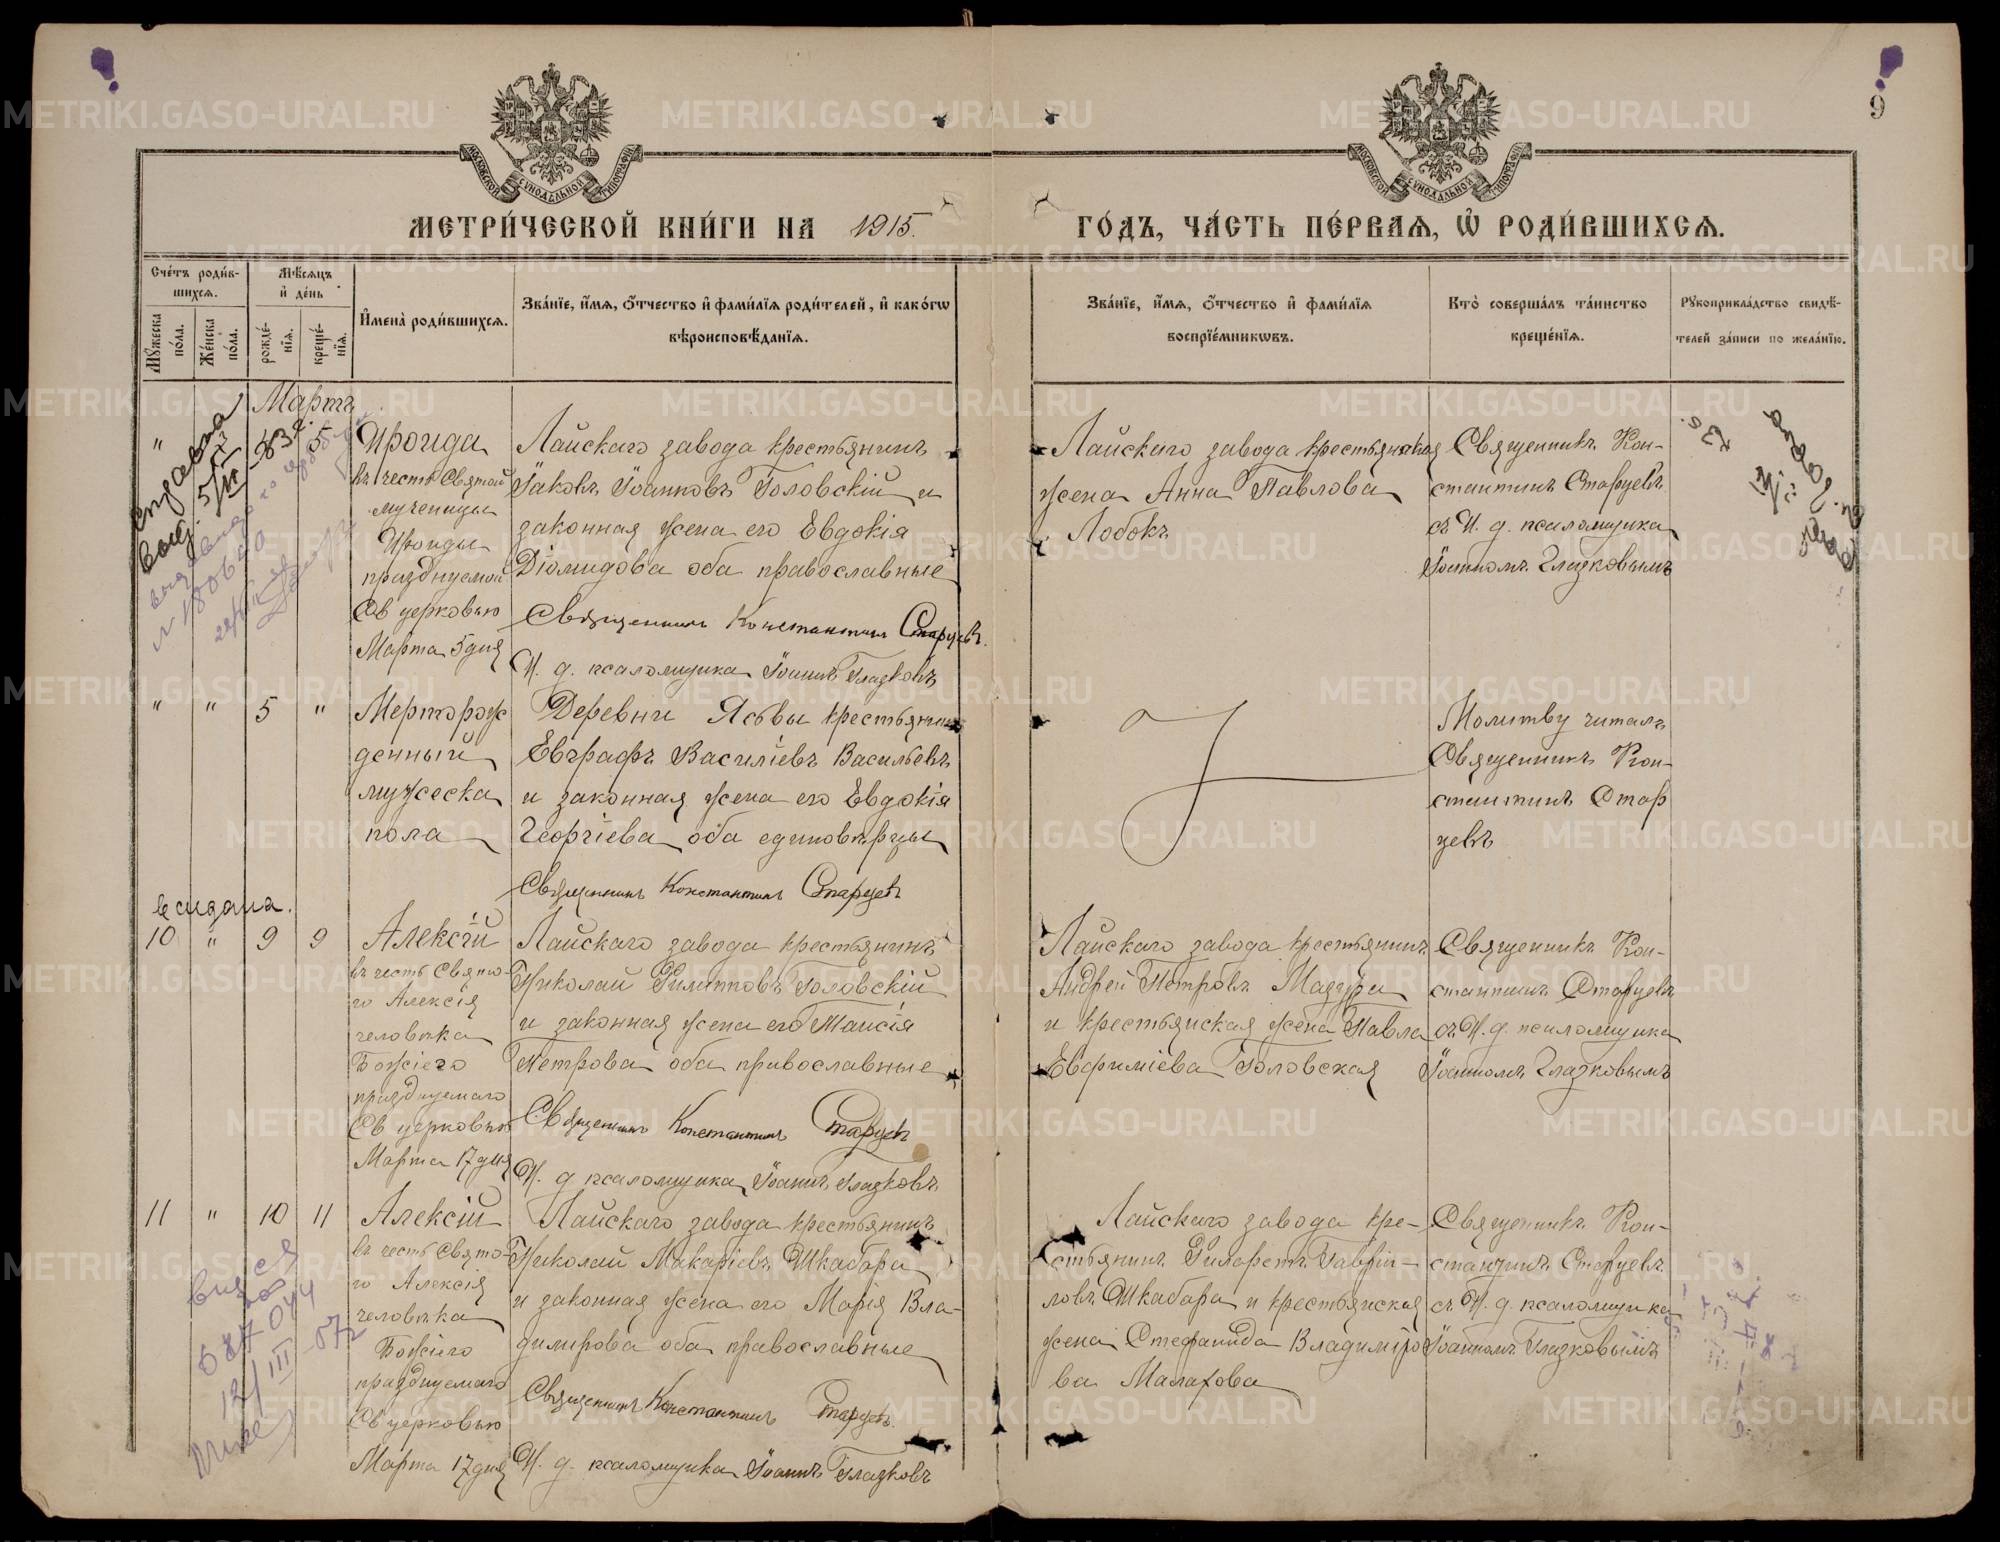 9
МОСКОВСКОЙ СѴНОДАЛЬНОЙ ТИПОГРАФІИ
МОСКОВСКОЙ СѴНОДАЛЬНОЙ ТИПОГРАФІИ
МЕТРИ́ЧЕСКОЙ КНИ́ГИ НА 1915.
ГО́ДЪ, ЧА́СТЬ ПЕ́РВАЯ, Ѡ҆ РОДИ́ВШИХСЯ.
Сче́тъ роди́в-
шихся.
Мѣсяцъ
и҆ де́нь
Му́жеска по́ла.
Же́нска по́ла.
рожде́-
нїя.
креще́-
нїя.
И҆мена̀ роди́вшихся.
Зва́нїе, и҆́мя, ѻ҆́тчество и҆ фами́лїя роди́телей, и҆ како́гѡ
вѣроисповѣ́данїя.
Зва́нїе, и҆́мя, ѻ҆́тчество и҆ фами́лїя
воспрїе́мникѡвъ.
Кто̀ соверша́лъ та́инство
креще́нїя.
Рꙋкоприкла́дство свидѣ́-
телей за́писи по жела́нїю.
Мартъ
" 3 5
Ираида
въ честь Святой
мученицы
Ираиды
празднуемой
Св церковью
Марта 5 дня
Лайскаго завода крестьянинъ
Іаковъ Іоанновъ Головскій и
законная жена его Евдокія
Діомидова оба православные
Священникъ Константинъ Старцевъ.
И. д. псаломщика Іоаннъ Глазковъ
Лайскаго завода крестьянская
жена Анна Павлова
Лобокъ
Священникъ Кон-
стантинъ Старцевъ
съ И. д. псаломщика
Іоанномъ Глазковымъ
справка
выд.
" " 5 "
Мерторож
денный
мужеска
пола
Деревни Ясьвы крестьянинъ
Евграфъ Василіевъ Васильевъ
и законная жена его Евдокія
Георгіева оба единовѣрцы
Священникъ Константинъ Старцевъ
Молитву читалъ
Священникъ Кон-
стантинъ Стар
цевъ
выдана.
10 " 9 9
Алексій
въ честь Свято-
го Алексія
человѣка
Божіего
празднуемаго
Св церковью
Марта 17 дня
Лайскаго завода крестьянинъ
Николай Филипповъ Головскій
и законная жена его Таисія
Петрова оба православные
Священникъ Константинъ Старцевъ
И. д псаломщика Іоаннъ Глазковъ
Лайскаго завода крестьянинъ
Андрей Петровъ Мазури
и крестьянская жена Павла
Евфиміева Головская
Священникъ Кон-
стантинъ Старцевъ
съ И. д. псаломщика
Іоанномъ Глазковымъ
11 " 10 11
Алексій
въ честь Свято-
го Алексія
человѣка
Божіего
празднуемаго
Св церковью
Марта 17 дня
Лайскаго завода крестьянинъ
Николай Макаріевъ Шкабара
и законная жена его Марія Вла-
димирова оба православные
Священникъ Константинъ Старцевъ.
И. д. псаломщика Іоаннъ Глазковъ
Лайскаго завода кре-
стьянинъ Филаретъ Гаврии-
ловъ Шкабара и крестьянская
жена Стефанида Владиміро
ва Малахова
Священникъ Кон-
стантинъ Старцевъ
съ И. д. псаломщика
Іоанномъ Глазковымъ
METRIKI.GASO-URAL.RU